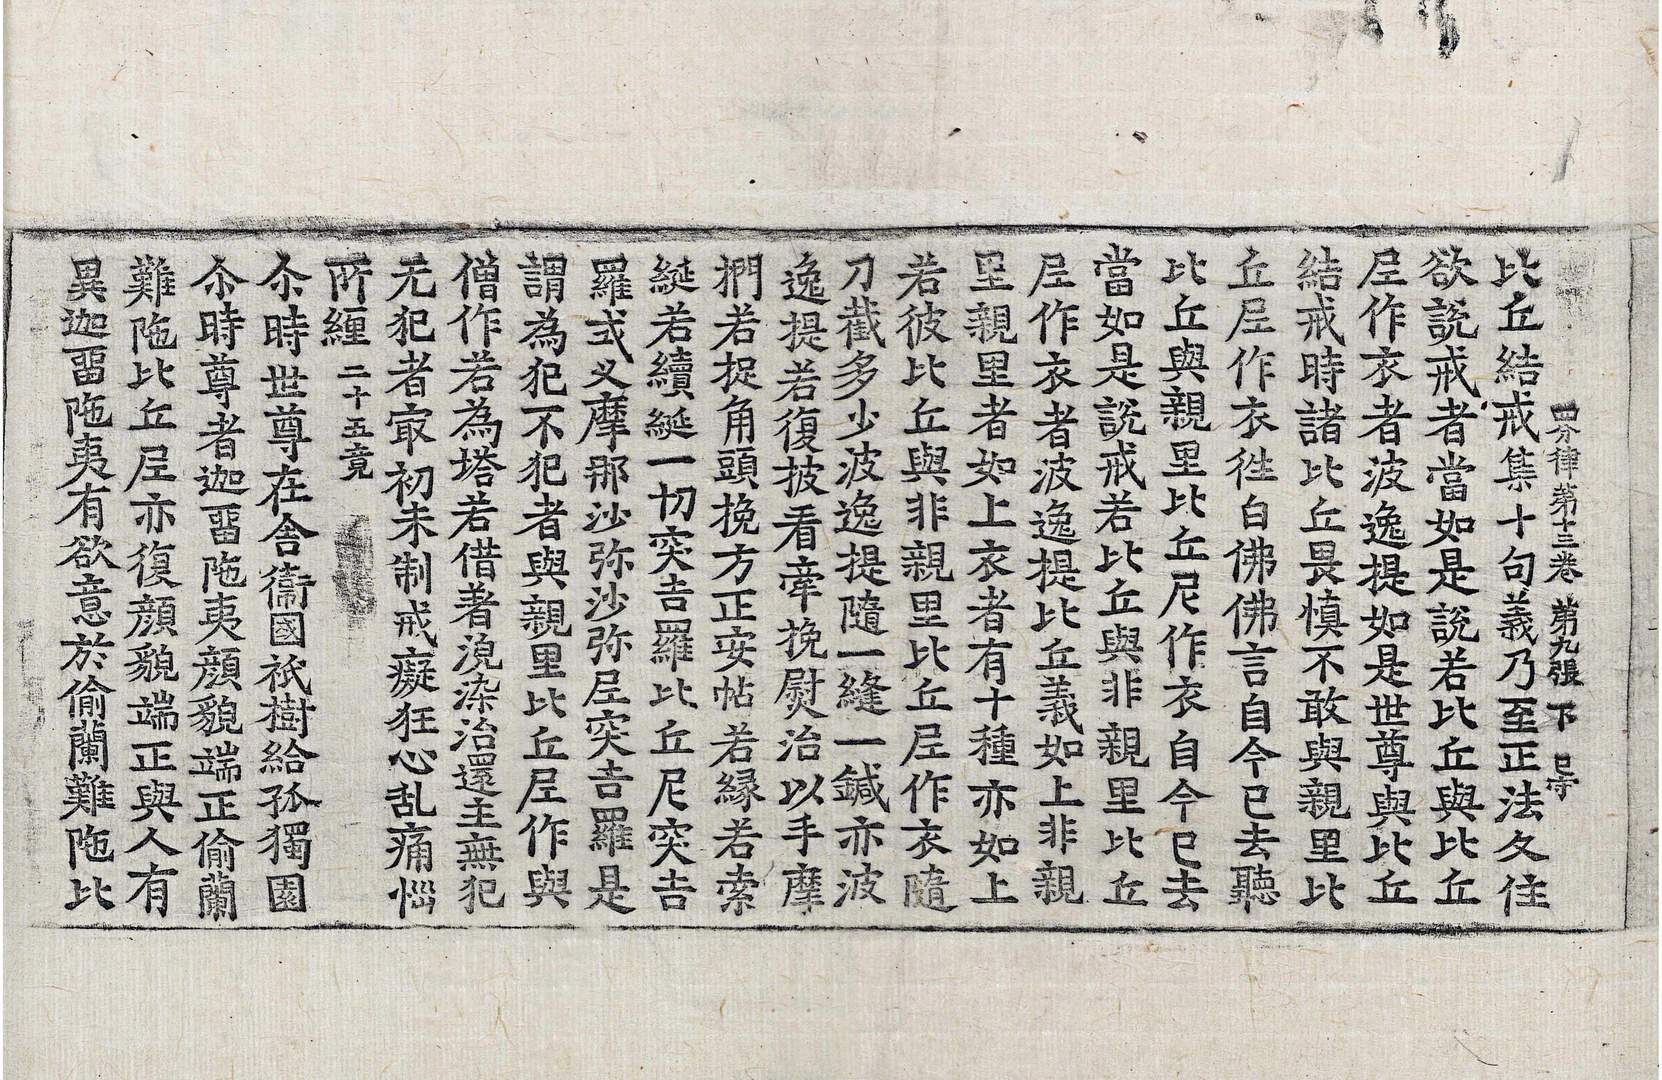 四分律第十三卷 第九張 下 已守
比丘結戒集十句義乃至正法久住
欲說戒者當如是說若比丘與比丘
尼作衣者波逸提如是世尊與比丘
結戒時諸比丘畏慎不敢與親里比
丘尼作衣徃白佛佛言自今已去聽
比丘與親里比丘尼作衣自今已去
當如是說戒若比丘與非親里比丘
尼作衣者波逸提比丘義如上非親
里親里者如上衣者有十種亦如上
若彼比丘與非親里比丘尼作衣隨
刀截多少波逸提隨一縫一鍼亦波
逸提若復披看牽挽熨治以手摩
捫若捉角頭挽方正安帖若緣若索
綖若續綖一切突吉羅比丘尼突吉
羅式叉摩那沙弥沙弥尼突吉羅是
謂為犯不犯者與親里比丘尼作與
僧作若為塔若借著浣染治還主無犯
无犯者㝡初未制戒癡狂心乱痛惱
所纏 二十五竟
尒時世尊在舍衛國祇樹給孤獨園
尒時尊者迦畱陁夷顏貌端正偷蘭
難陁比丘尼亦復顏貌端正與人有
異迦畱陁夷有欲意於偷蘭難陁比